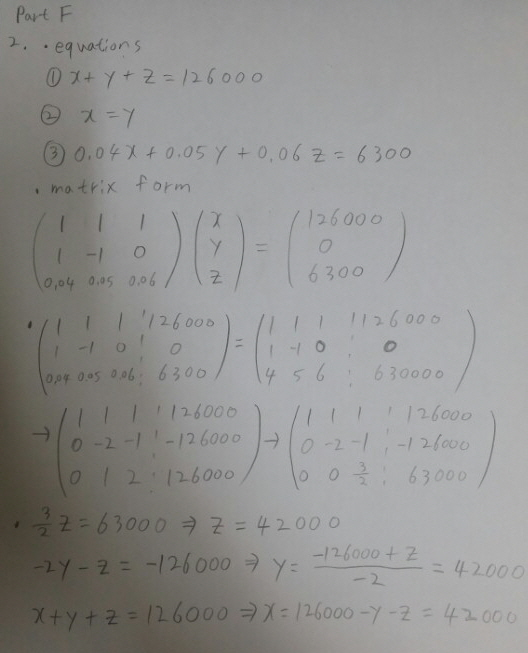 Part F
2. · equations
① x + y + z = 126000
② x = y
③ 0.04x + 0.05y + 0.06z = 6300
· matrix form
( 1 1 1 ) ( x ) ( 126000 )
( 1 -1 0 ) ( y ) = ( 0 )
( 0.04 0.05 0.06 ) ( z ) ( 6300 )
· ( 1 1 1 ¦ 126000 ) ( 1 1 1 ¦ 126000 )
( 1 -1 0 ¦ 0 ) = ( 1 -1 0 ¦ 0 )
( 0.04 0.05 0.06 ¦ 6300 ) ( 4 5 6 ¦ 630000 )
( 1 1 1 ¦ 126000 ) ( 1 1 1 ¦ 126000 )
→ ( 0 -2 -1 ¦ -126000 ) → ( 0 -2 -1 ¦ -126000 )
( 0 1 2 ¦ 126000 ) ( 0 0 3/2 ¦ 63000 )
· 3/2 z = 63000 ⇒ z = 42000
-2y - z = -126000 ⇒ y = (-126000 + z)/(-2) = 42000
x + y + z = 126000 ⇒ x = 126000 - y - z = 42000